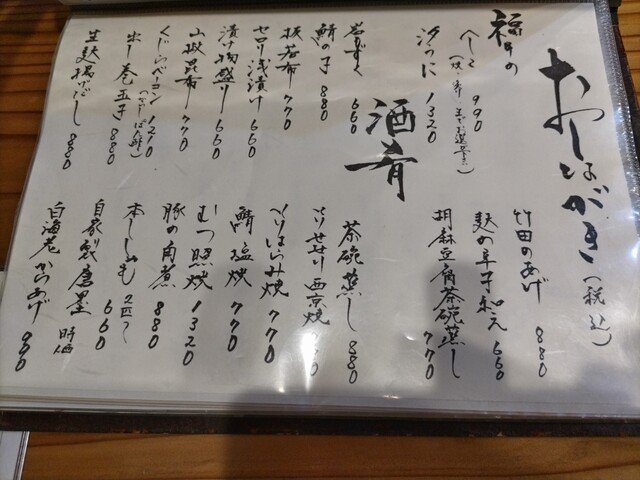 おしながき(税込)
福井の
へしこ 990
汐うに 1320
竹田のあげ 880
麩の辛子和え 660
胡麻豆腐茶碗蒸し 770
酒肴
岩もずく 660
鯖の子 880
板若布 770
セロリ浅漬け 660
漬け物盛り 660
山椒昆布 770
くじらベーコン 1210
出し巻玉子 880
生麩揚げだし 880
茶碗蒸し 880
とりせせり西京焼
とりはらみ焼 770
鯖塩焼 770
むつ照焼 1320
豚の角煮 880
本ししゃも 2匹 660
自家製唐墨 時価
白海老からあげ 990